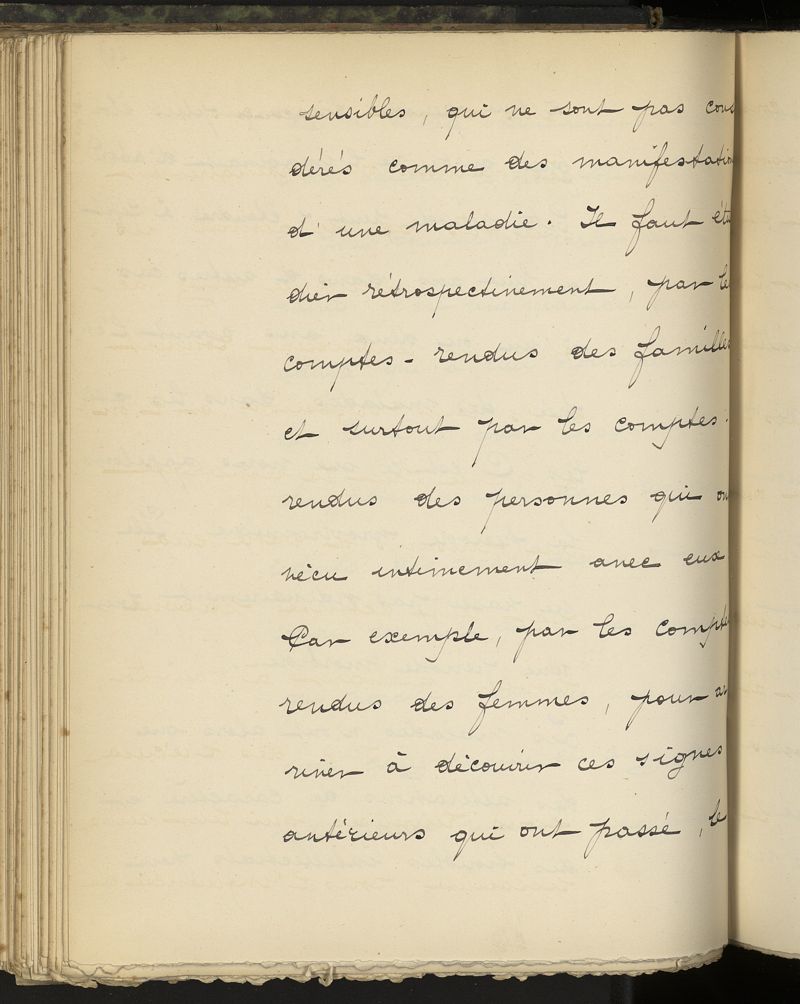 sensibles, qui ne sont pas cons
dérés comme des manifestation
d'une maladie. Il faut étu
dier rétrospectivement, par les
comptes-rendus des familles
et surtout par les comptes-
rendus des personnes qui on
vécu intimement avec eux
Par exemple, par les comptes
rendus des femmes, pour ar
river à découvrir ces signes
antérieurs qui ont passé, le